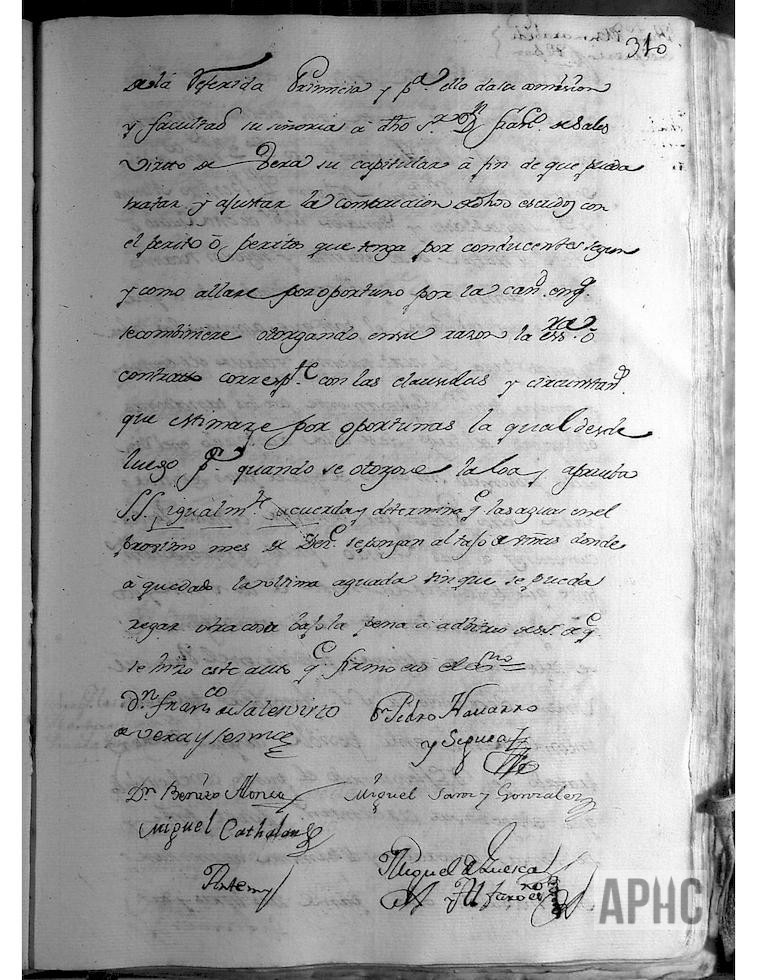 310
de la Referida Primicia y p.ª ello da la comision
y facultad su señoria a dho s.r D.n Fran.co de Sales
Virto de Vera su capitular a fin de que pueda
tratar y ajustar la construccion de dhos escudos con
el perito ô, peritos que tenga por conducentes segun
y como allare por oportuno por la can.d en q.e
se combiniere otorgando en su razon la ess.ra ô
contrato corresp.te con las clausulas y circunstan.s
que estimare por oportunas la qual desde
luego p.ª quando se otorgue la loa y aprueba
S.S. igualm.te acuerda y determina q.e las aguas en el
proximo mes de Den.e se pongan al tajo de viñas donde
a quedado la ultima aguada sin que se pueda
regar otra cosa bajo la pena a adbitrio de S.S. de q.e
se hizo este auto q.e firmo
D.n Fran.co de Sales Virto
de Vera y
D.n Pedro Navarro
y Segura
D.n Benito Alonso
Miguel y Gonzalez
Miguel Cathalan
Antemy
Miguel de Huesca
y Alfaro
APHC